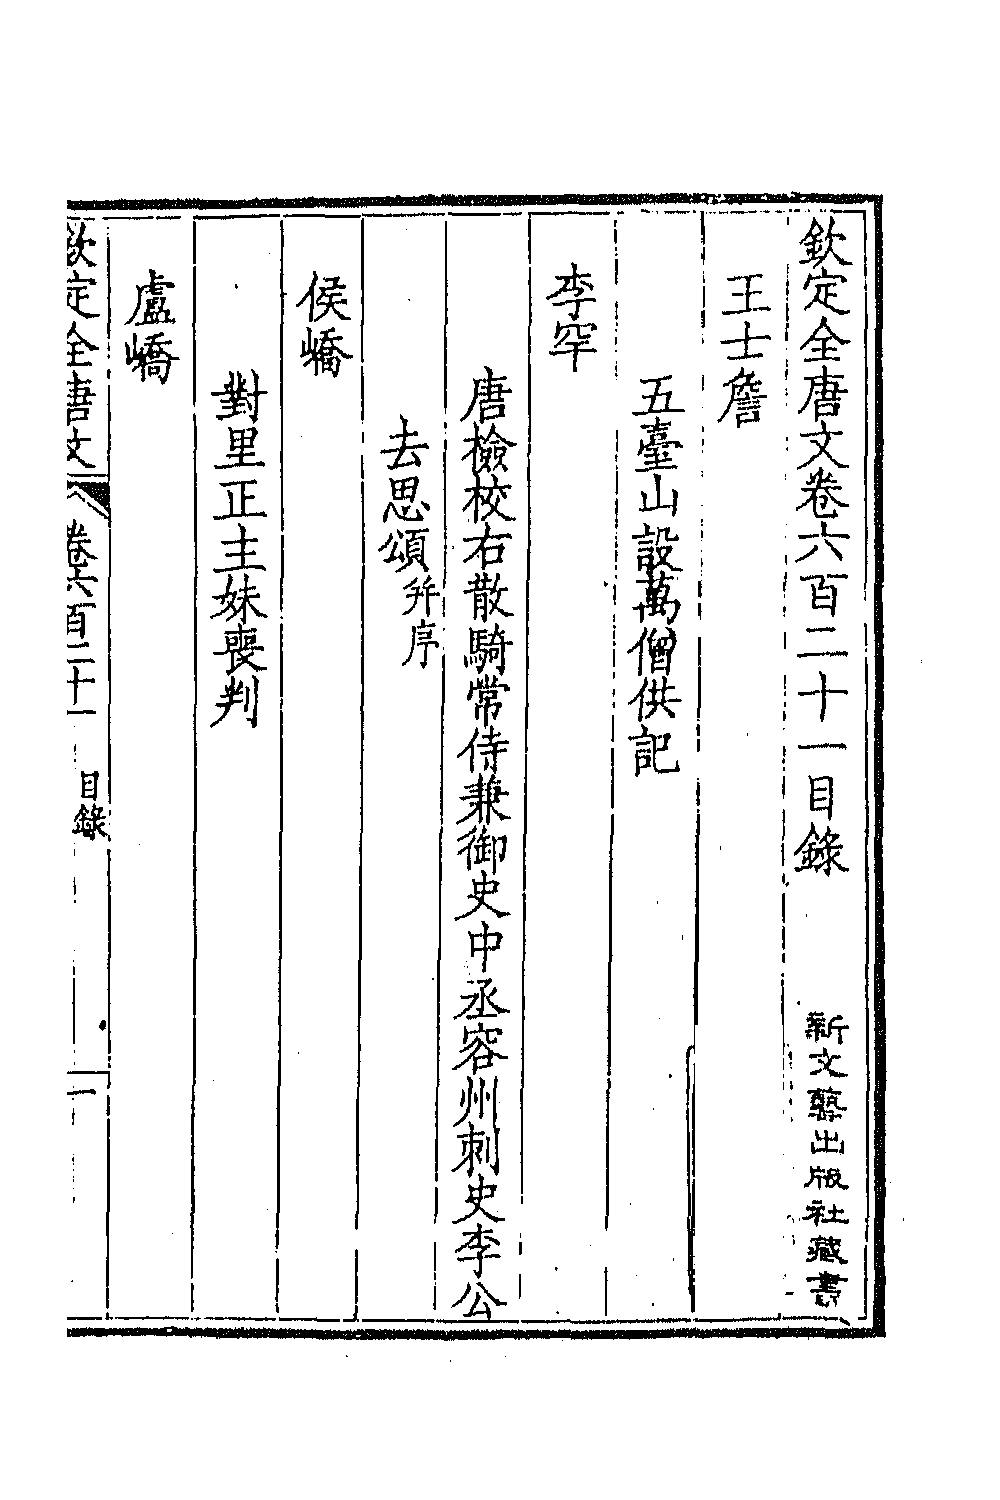 欽定全唐文卷六百二十一目錄
新文藝出版社藏書
王士詹
五臺山設萬僧供記
李罕
唐檢校右散騎常侍兼御史中丞容州刺史李公
去思頌并序
侯嶠
對里正主妹喪判
盧嶠
欽定全唐文
卷六百二十一
目錄
一